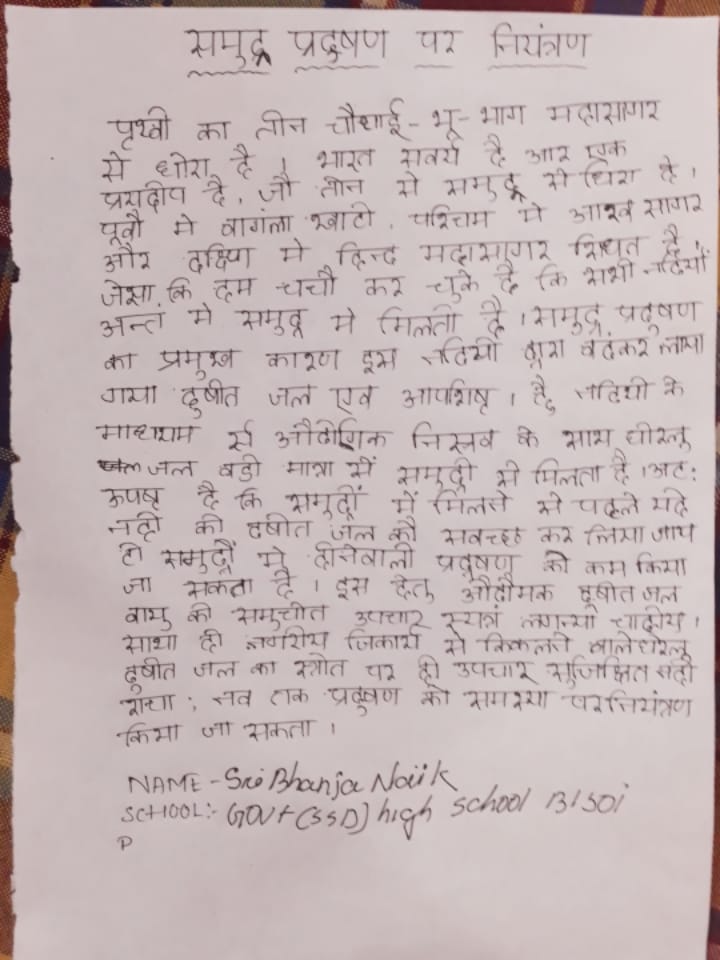 समुद्र प्रदुषण पर नियंत्रण
पृथ्वी का तीन चौथाई-भू-भाग महासागर
से घोरा है । भारत सवर्य है आर एक
प्रायदीप है, जौ तीन से समुद्र से घिरा है ।
पूर्वी मे बागंला खाटी, पश्चिम मे आरव सागर
और दक्षिण मे हिन्द महासागर स्थित है,
जेसा कि हम चर्चा कर चुके है कि सभी नदियाँ
अन्त मे समुद्र मे मिलती है । समुद्र प्रदुषण
का प्रमुख कारण इस नदियो द्वारा वहकर लाया
गया दुषीत जल एव आपशिष्ट । है, नदियो के
माध्यम से औदोगिक निस्रव के साथ घोरलु
जल बडी मात्रा में समुद्रो से मिलता है ।अट:
स्पष्ट है कि समुद्रों में मिलने से पहले यदि
नदी की दुषीत जल कौ सवच्छ कर लिया जाय
तो समुद्रौं मे होनेवाली प्रदुषण को कम किया
जा सकता है । इस हेतु दूषीत जल
वायु की समुचीत उपचार सयत्रं लगाना चाहीय ।
साथा ही नगरीय से निकलने वाले घरेलु
दुषीत जल का स्त्रोत पर ही उपचार नही
; तव तक प्रदुषण की समस्या पर नियंत्रण
किया जा सकता ।
NAME - Sri Bhanja Naik
SCHOOL:- GOVT (SSD) high school BISOI
P